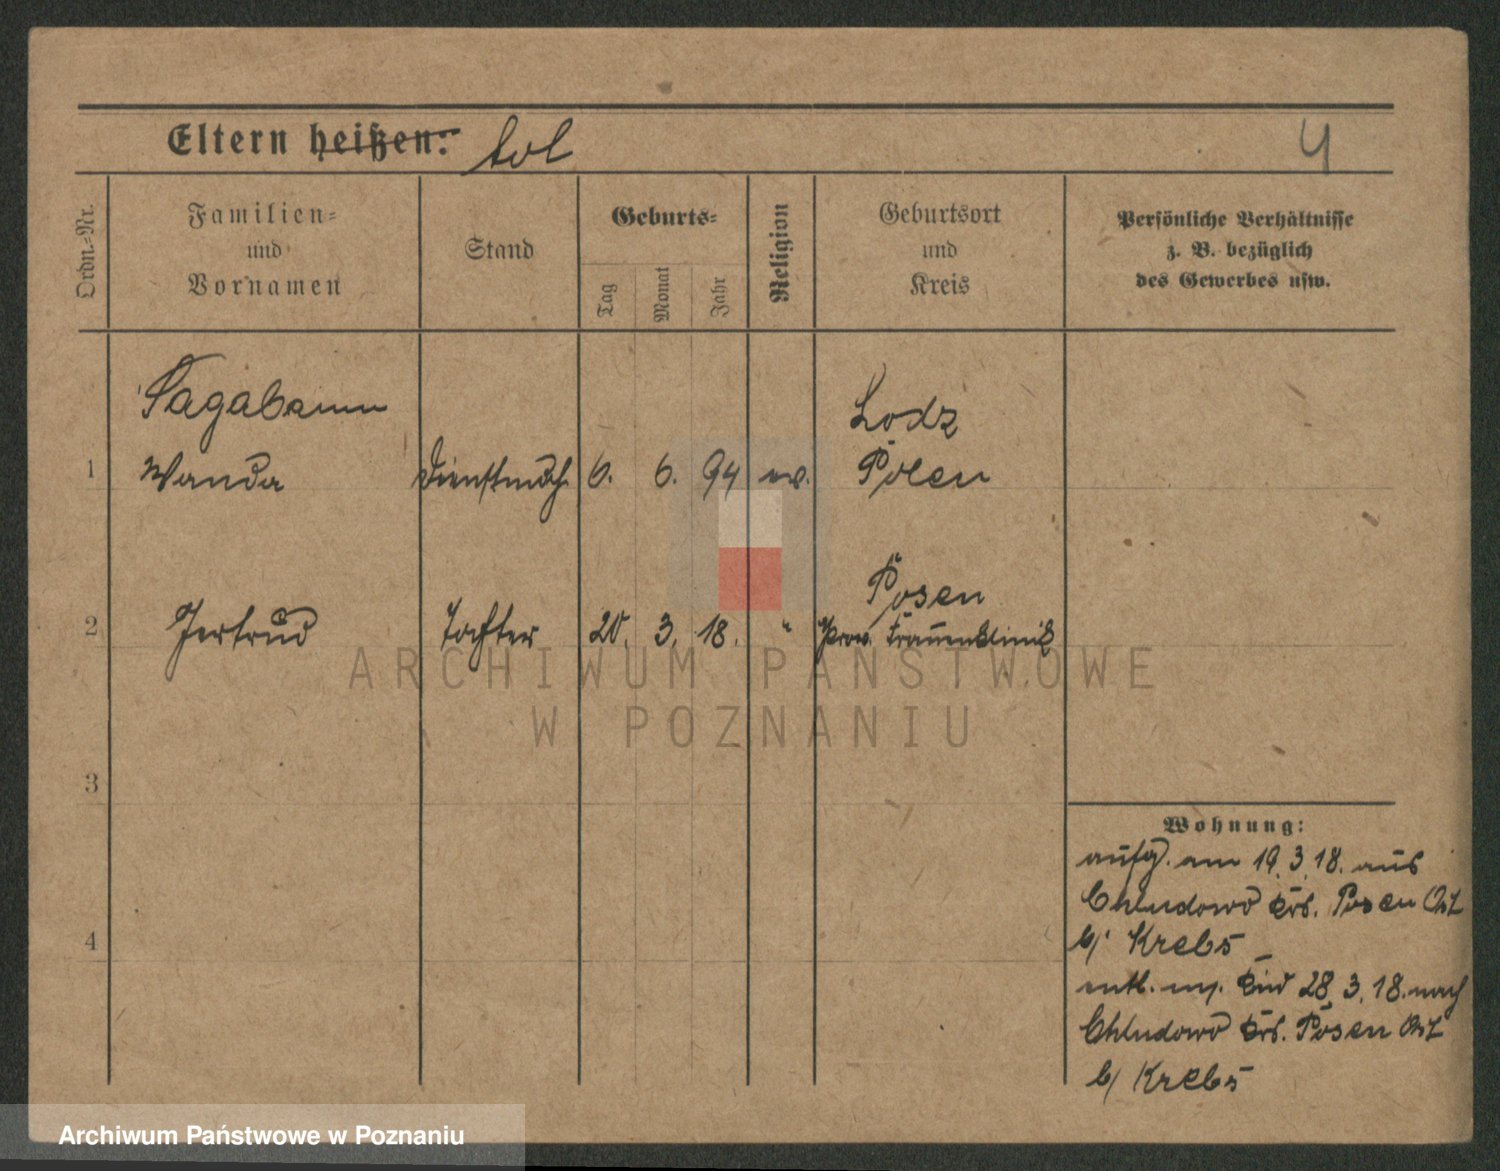 Eltern heißen: tot
4
Ordn.-Nr.
Familien-
und
Vornamen
Stand
Geburts-
Tag
Monat
Jahr
Religion
Geburtsort
und
Kreis
Persönliche Verhältnisse
z. B. bezüglich
des Gewerbes usw.
Lodz
1 Wanda Dienstmdch. 6. 6. 94 ev. Polen
Posen
2 Gertrud Tochter 20. 3. 18. " Prov. Frauenklinik
3
4
Wohnung:
aufg. am 19.3.18. aus
Chludowo Krs. Posen Ost
b/ Krebs
entl. m/. Kind 28.3.18. nach
Chludowo Krs. Posen Ost
b/ Krebs
ARCHIWUM PAŃSTWOWE
W POZNANIU
Archiwum Państwowe w Poznaniu